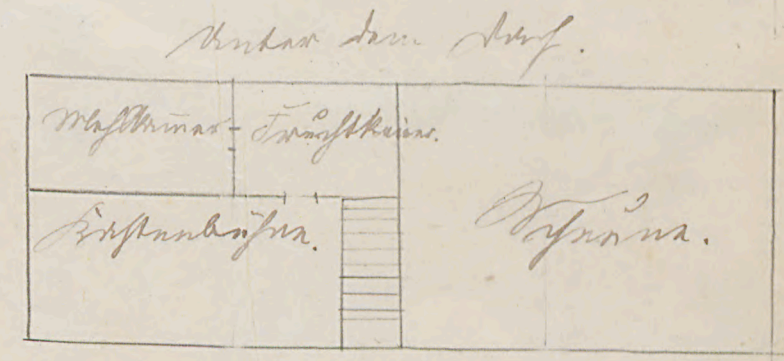 Unter dem Dach.
Mehlkam̅er-
Fruchtkam̅er.
Kastenbühne.
Scheune.